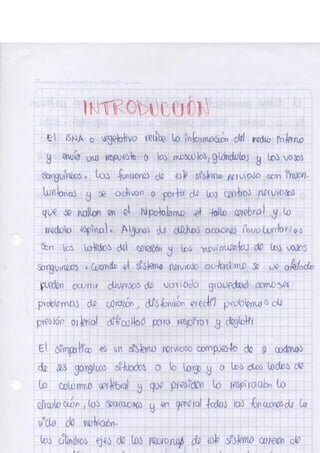 INTRODUCCIÓN
El SNA o vegetativo recibe la información del medio interno
y envía una respuesta a los musculos, glándulas y los vasos
sanguíneos. Las funciones de este sistema nervioso son invon-
luntarias y se activan a partir de los centros nerviosos
que se hallan en el hipotálamo el tallo cerebral y la
medula espinal. Algunos de dichas acciones involuntarios
son los latidos del corazón y los movimientos de los vasos
sanguíneos. Cuando el sistema nervioso autonomo se ve afectado
pueden ocurrir diversos de variada gravedad como ser
problemas de corazón, disfunción erectil problemas de
presión arterial dificultad para respirar y deglutir
El simpatico es un sistema nervioso compuesto de 2 cadenas
de 23 ganglios situados a lo largo y a los dos lados de
la columna vertebral y que presiden la respiración la
circulación, las secreciones y en general todas las funciones de la
vida de nutrición.
Los cilindros ejes de las neuronas de este sistema carecen de